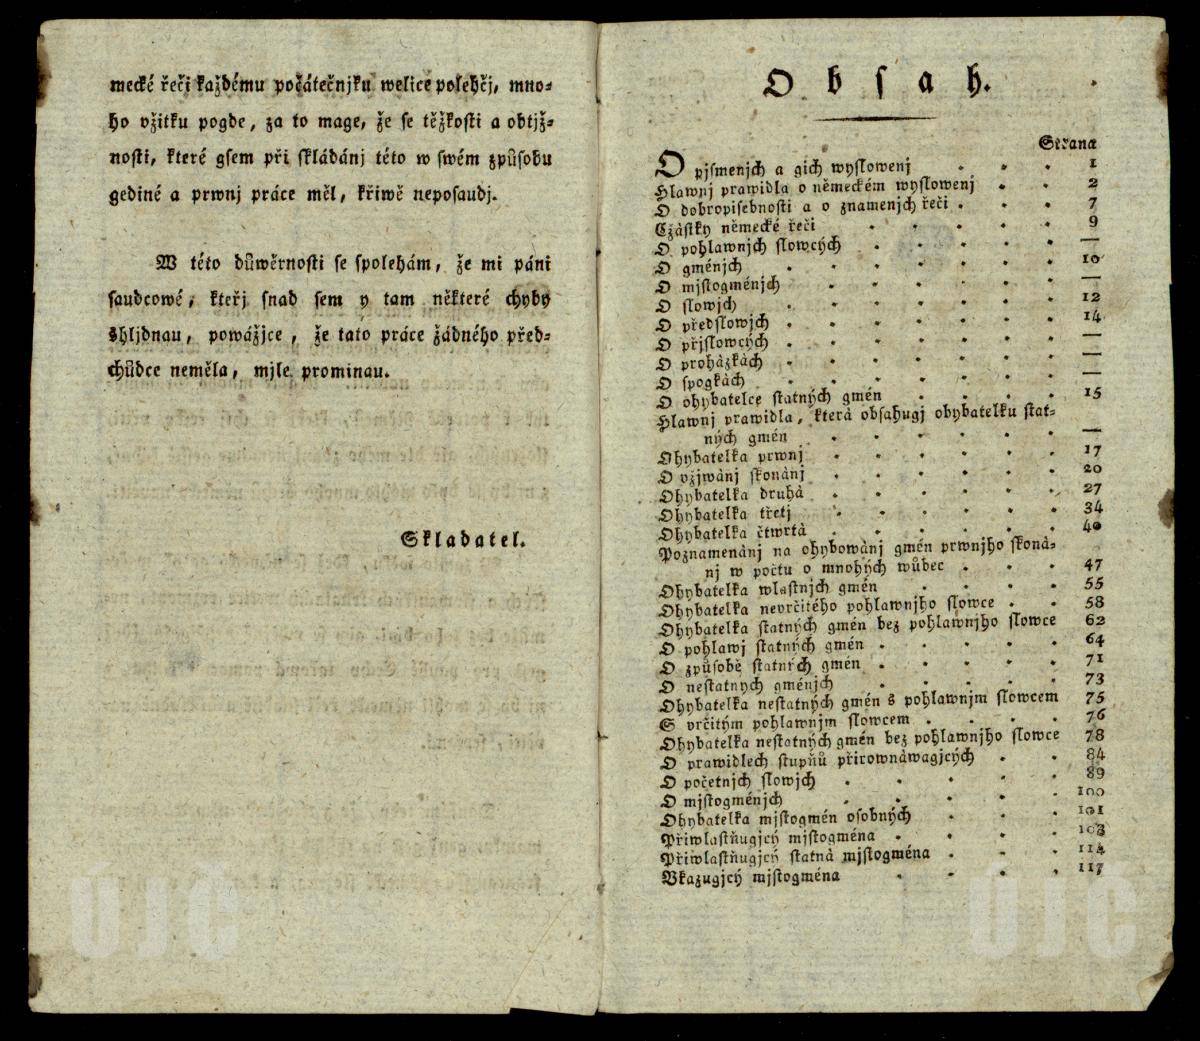 mecké řeči každému počátečnjku welice polehčj, mno=
ho vžitku pogde, za to mage, že se těžkosti a obtjž=
nosti, které gsem při skládánj této w swém způsobu
gediné a prwnj práce měl, křiwě neposaudj.
W této důwěrnosti se spolehám, že mi páni
saudcowé, kteřj snad sem y tam některé chyby
shljdnau, powážjce, že tato práce žádného před=
chůdce neměla, mjle prominau.
Skladatel.
Obsah.
Strana
O pjsmenjch a gich wyslowenj 1
Hlawnj prawidla o německém wyslowenj 2
O dobropisebnosti a o znamenjch řeči 7
Czàstky německé řeči 9
O pohlawnjch slowcých —
O gménjch 10
O mjstogménjch —
O slowjch 12
O předslowjch 14
O přjslowcých —
O prohàzkách —
O spogkách —
O ohybatelce statných gmén 15
Hlawnj prawidla, která obsahugj obybatelku stat=
ných gmén —
Ohybatelka prwnj 17
O vžjwànj skonànj 20
Ohybatelka druhà 27
Ohybatelka třetj 34
Ohybatelka čtwrtà 40
Poznamenànj na ohybowànj gmén prwnjho skonà=
nj w počtu o mnohých wůbec 47
Ohybatelka wlastnjch gmén 55
Ohybatelka nevrčitého pohlawnjho slowce 58
Ohybatelka statných gmén bez pohlawnjho slowce 62
O pohlawj statných gmén 64
O způsobě statných gmén 71
O nestatnych gménjch 73
Ohybatelka nestatných gmén s pohlawnjm slowcem 75
S vrčitým pohlawnjm slowcem 76
Ohybatelka nestatných gmén bez pohlawnjho slowce 78
O prawidlech stupňů přirownàwagjcých 84
O početnjch slowjch 89
O mjstogménjch 100
Ohybatelka mjstogmén osobných 101
Přiwlastňugjcý mjstogména 103
Přiwlastňugjcý statnà mjstogména 114
Vkazugjcý mjstogména 117
ÚJČ
ÚJČ